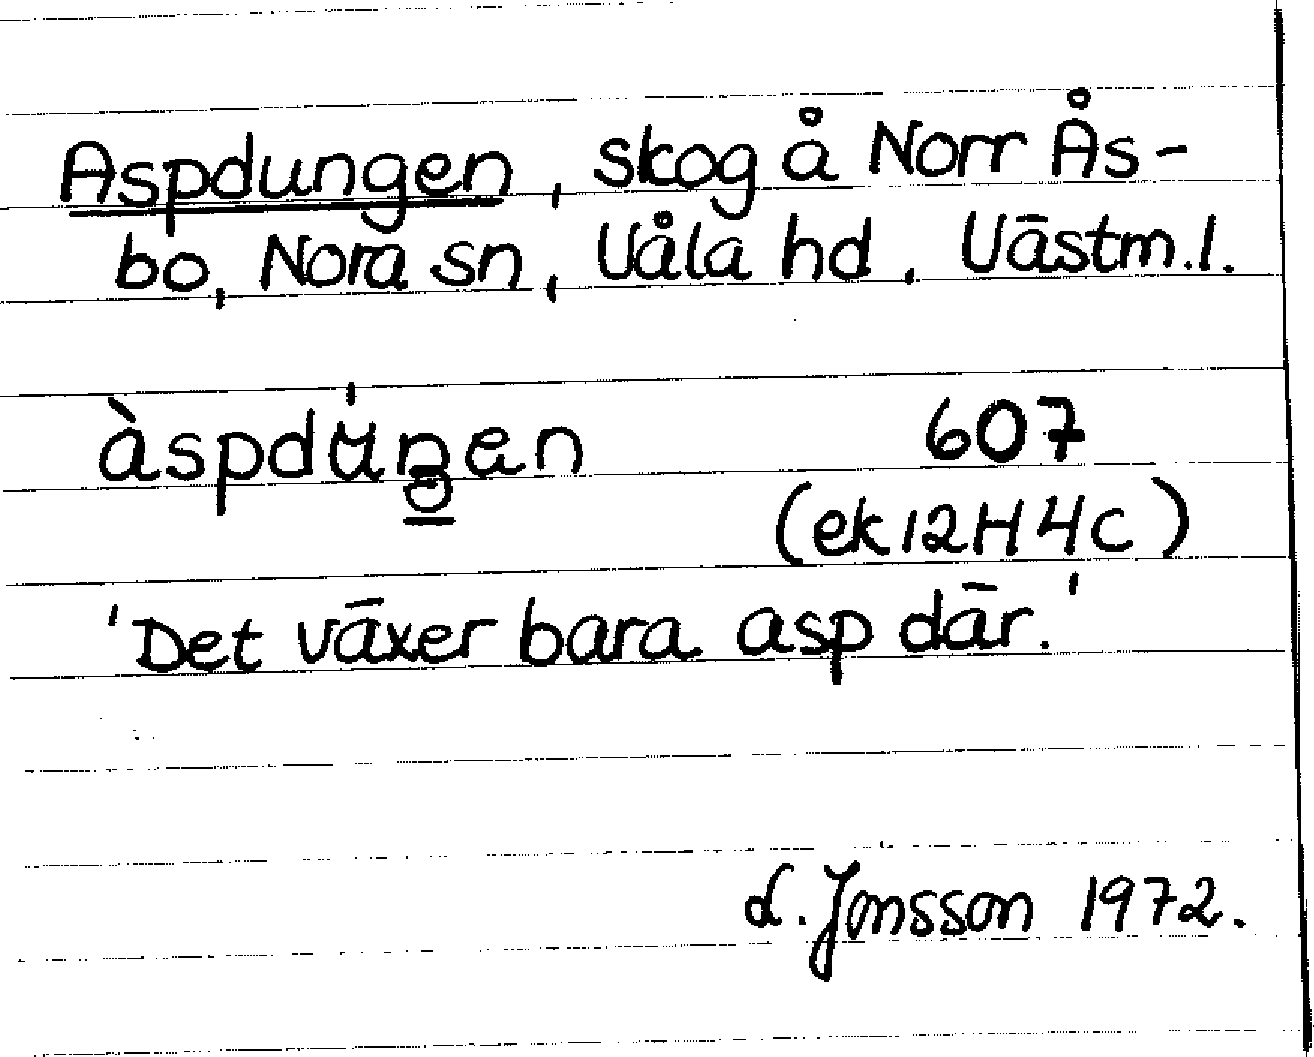 Aspdungen, skog å Norr Ås-
bo, Nora sn, Våla hd, Västm.l.
àspdúŋen 607
(ek 12H4C)
'Det växer bara asp där.'
L. Jonsson 1972.